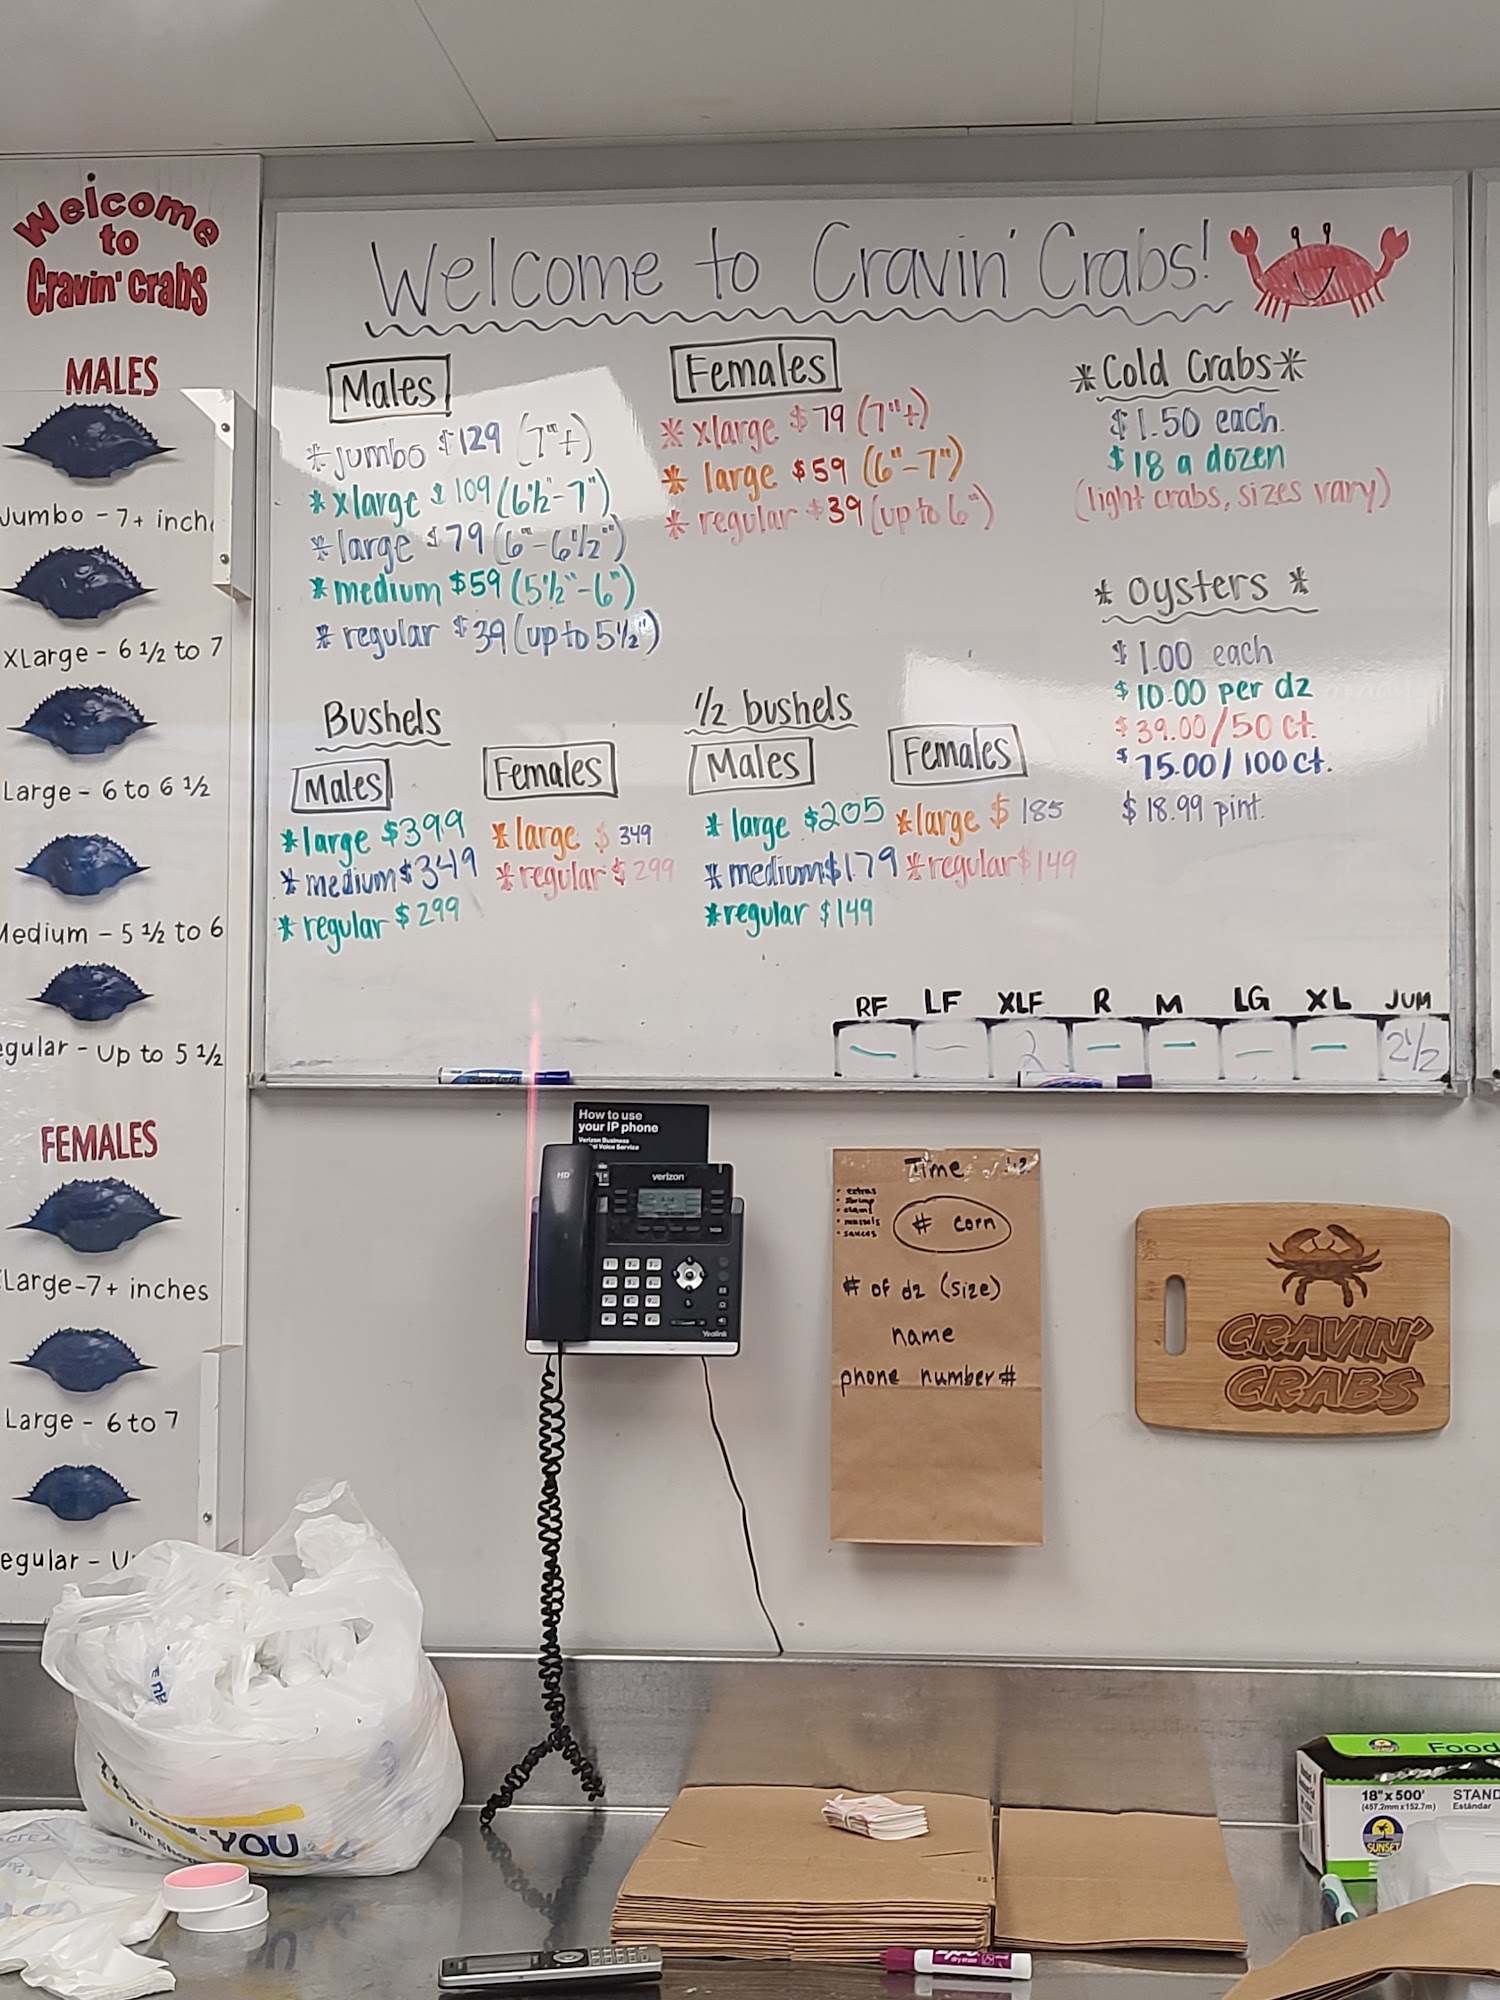 Welcome
to
Cravin' Crabs
MALES
Jumbo - 7+ inch
XLarge - 6 1/2 to 7
Large - 6 to 6 1/2
Medium - 5 1/2 to 6
egular - Up to 5 1/2
FEMALES
Large-7+ inches
Large - 6 to 7
egular - U
Welcome to Cravin' Crabs!
Males
*jumbo $129 (7"+)
*xlarge $109 (6½"-7")
*large $79 (6"-6½")
*medium $59 (5½"-6")
*regular $39 (up to 5½")
Females
*xlarge $79 (7"+)
*large $59 (6"-7")
*regular $39 (up to 6")
*Cold Crabs*
$1.50 each.
$18 a dozen
(light crabs, sizes vary)
*Oysters*
$1.00 each
$10.00 per dz
$39.00/50 ct.
$75.00/100 ct.
$18.99 pint.
Bushels
Males
*large $399
*medium $349
*regular $299
Females
*large $349
*regular $299
1/2 bushels
Males
*large $205
*medium $179
*regular $149
Females
*large $185
*regular $149
RF LF XLF R M LG XL JUM
- - 2 - - - - 2½
How to use
your IP phone
Verizon Business
Voice Service
HD
verizon
Yealink
Time
• extras
• shrimp
• clams
• mussels
• sauces
# corn
# of dz (size)
name
phone number#
CRAVIN'
CRABS
YOU
Food
18"x500'
(457.2mm x 152.7m)
STAND
Estándar
SUNSET
dry erase